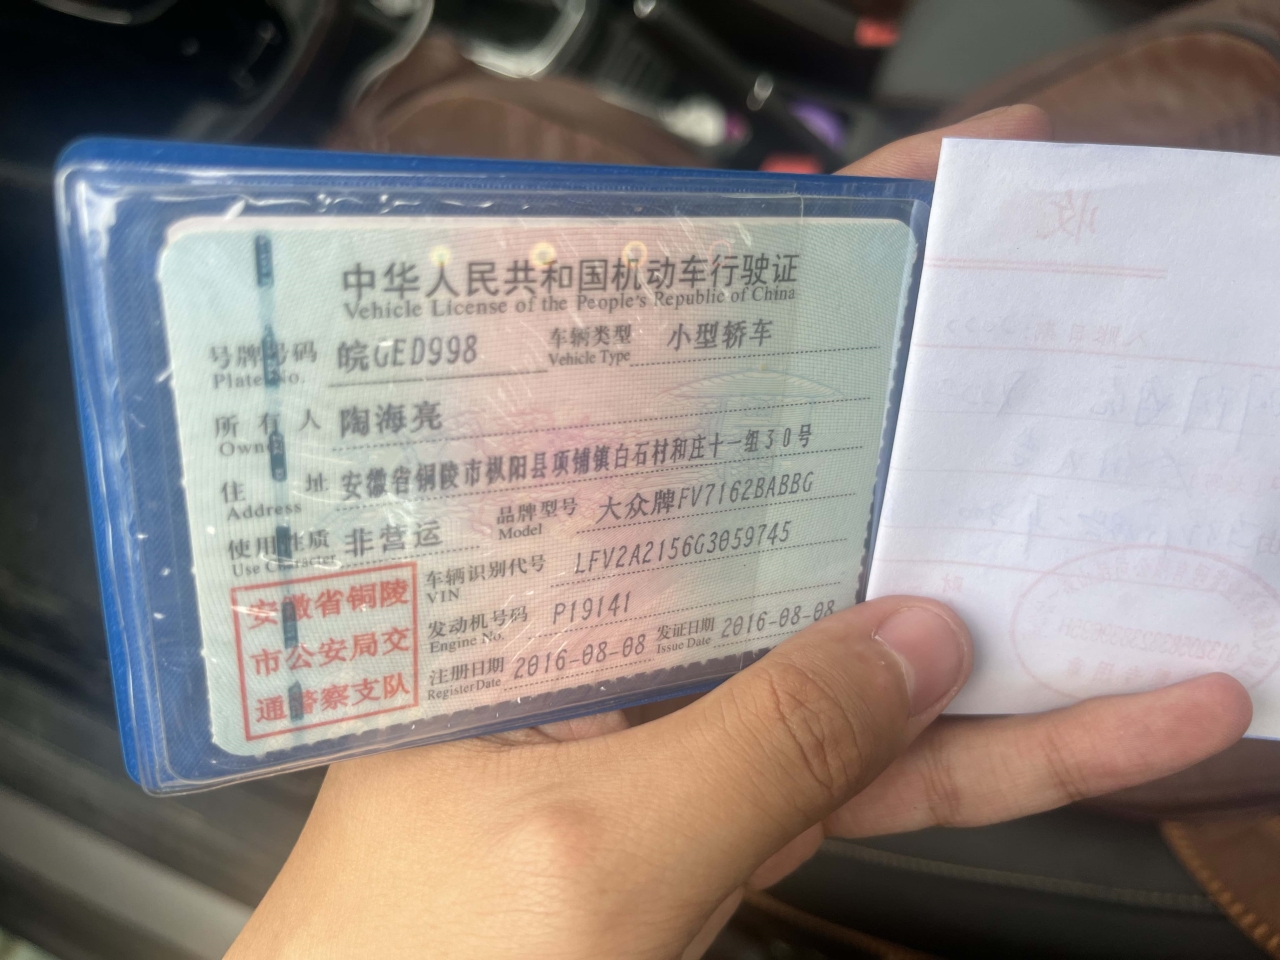 中华人民共和国机动车行驶证
Vehicle License of the People's Republic of China
号牌号码 皖GED998 车辆类型 小型轿车
Plate No. Vehicle Type
所有人 陶海亮
Owner
住址 安徽省铜陵市枞阳县项铺镇白石村和庄十一组30号
Address
使用性质 非营运 品牌型号 大众牌FV7162BABBG
Use Character Model
车辆识别代号 LFV2A2156G3059745
VIN
发动机号码 P19141
Engine No.
注册日期 2016-08-08 发证日期 2016-08-08
Register Date Issue Date
安徽省铜陵
市公安局交
通警察支队
收